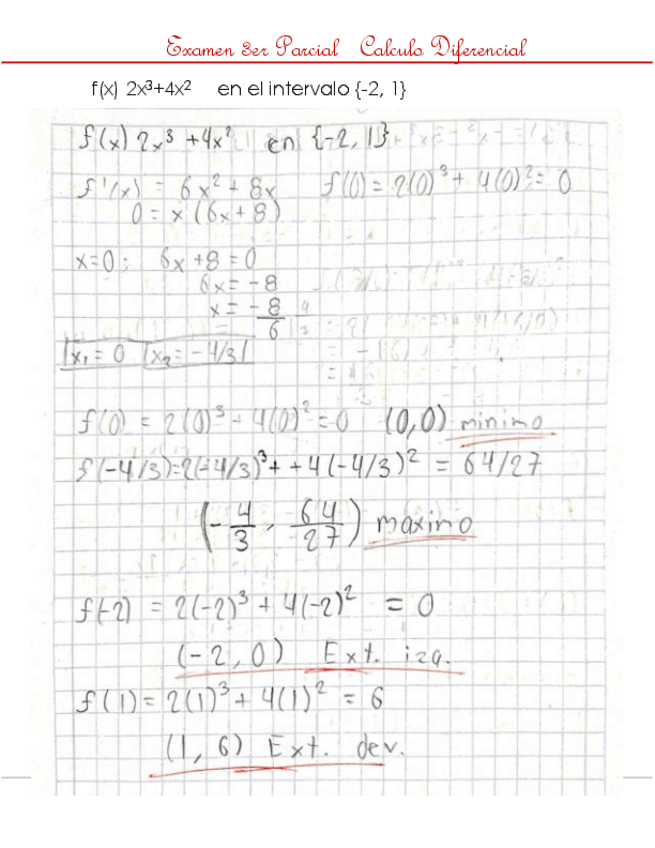 Examen 3er Parcial Calculo Diferencial
f(x) 2x³+4x² en el intervalo {-2, 1}
f(x) 2x³ +4x² en {-2, 1}
f'(x) = 6x² + 8x f(0) = 2(0)³ + 4(0)² = 0
0 = x (6x+8)
x=0; 6x +8 = 0
6x = -8
x = -8/6 4/3
x₁ = 0 x₂ = -4/3
f(0) = 2(0)³ - 4(0)² = 0 (0,0) minimo
f(-4/3)=2(-4/3)³+ +4(-4/3)² = 64/27
(-4/3, 64/27) maximo
f(-2) = 2(-2)³ + 4(-2)² = 0
(-2,0) Ext. izq.
f(1) = 2(1)³ + 4(1)² = 6
(1, 6) Ext. der.